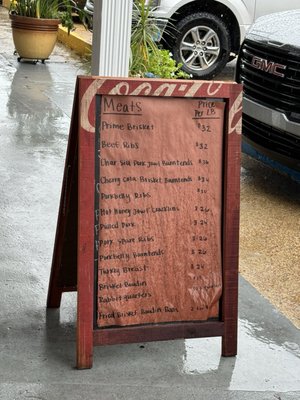 Coca-Cola
Meats Price Per LB
Prime Brisket $32
Beef Ribs $32
Char Siu Pork Jowl Burntends $36
Cherry Cola Brisket Burntends $36
Porkbelly Ribs $30
Hot Honey Jowl Cracklins $26
Pulled Pork $24
Pork Spare Ribs $26
Porkbelly Burntends $26
Turkey Breast $24
Brisket Boudin
Rabbit quarters
Fried Brisket Boudin Balls
GMC